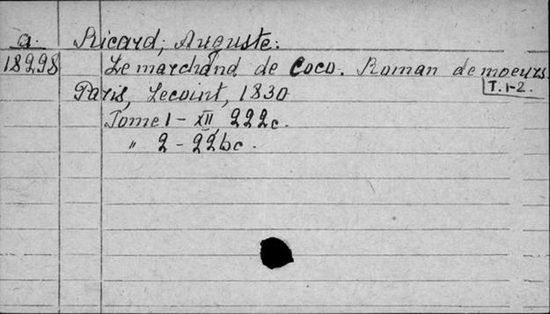 a. Ricard, Auguste.
18298 Le marchand de Coco. Roman de moeurs.
T. 1-2.
Paris, Lecoint, 1830
Tome 1 - XII 222c.
" 2 - 226c.